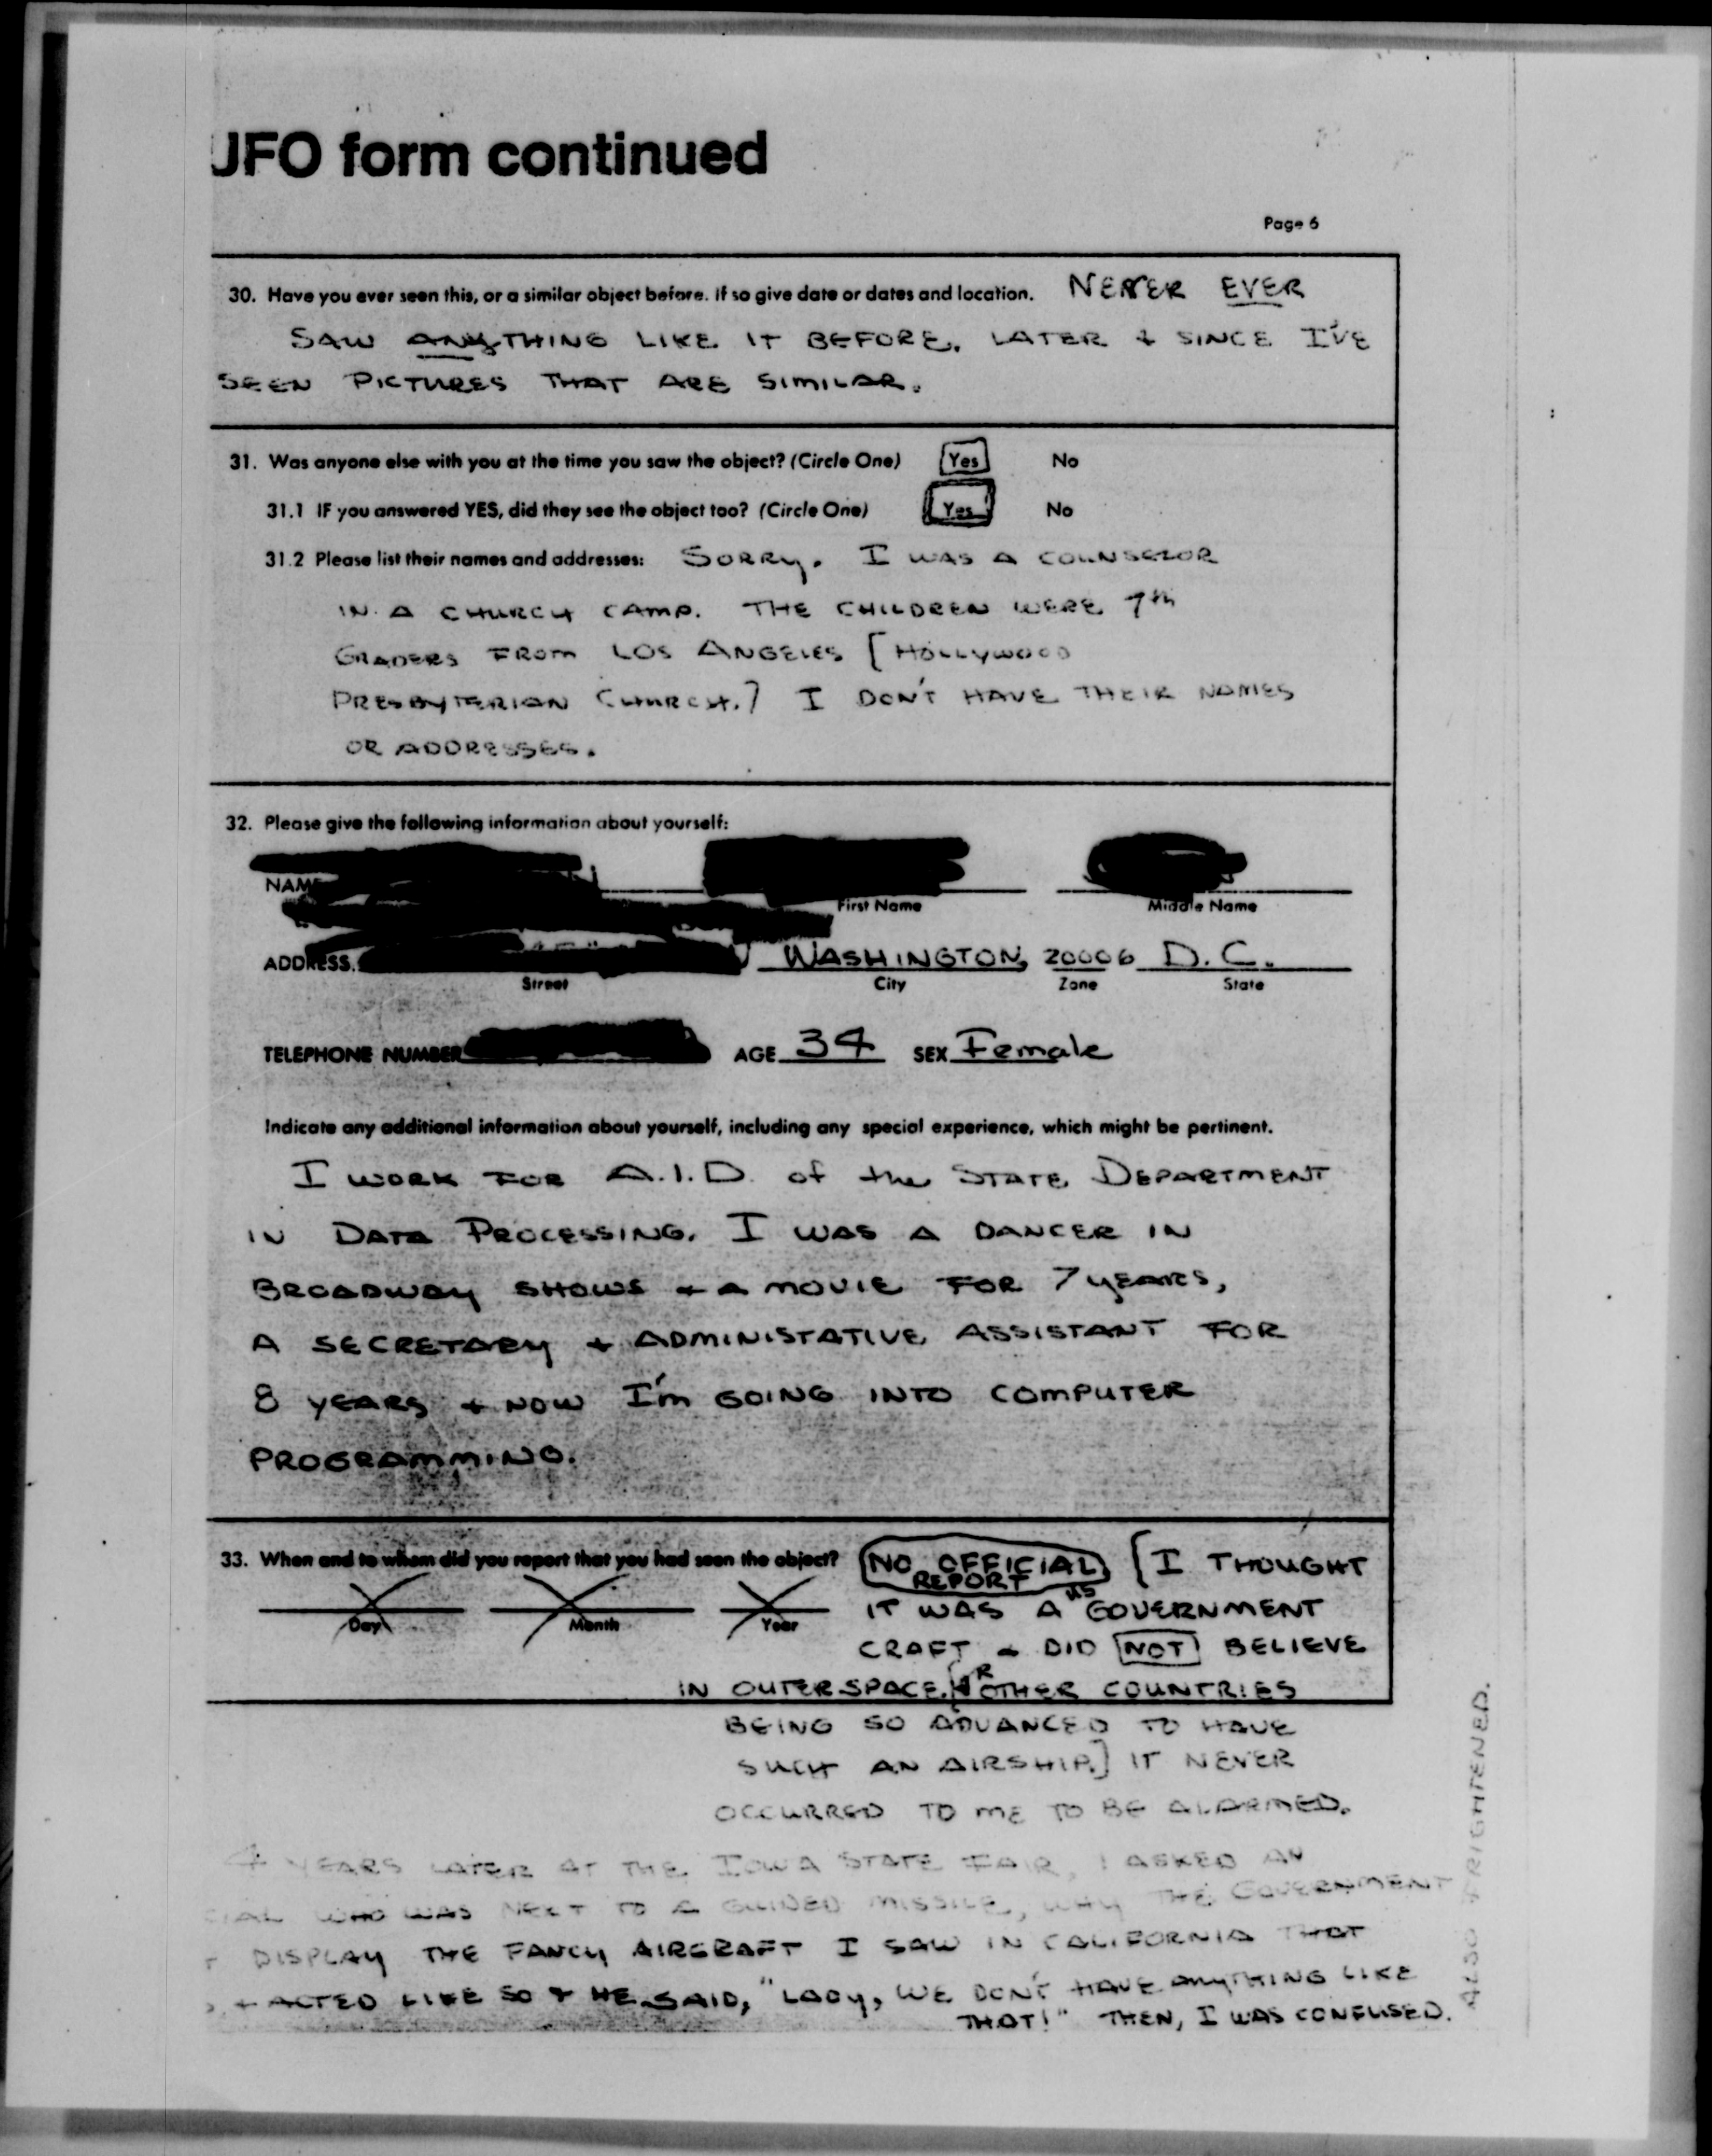 UFO form continued
Page 6
30. Have you ever seen this, or a similar object before. If so give date or dates and location. NEVER EVER
SAW ANYTHING LIKE IT BEFORE. LATER & SINCE I'VE
SEEN PICTURES THAT ARE SIMILAR.
31. Was anyone else with you at the time you saw the object? (Circle One) Yes No
31.1 IF you answered YES, did they see the object too? (Circle One) Yes No
31.2 Please list their names and addresses: SORRY. I WAS A COUNSELOR
IN A CHURCH CAMP. THE CHILDREN WERE 7th
GRADERS FROM LOS ANGELES [HOLLYWOOD
PRESBYTERIAN CHURCH.] I DON'T HAVE THEIR NAMES
OR ADDRESSES.
32. Please give the following information about yourself:
NAME
First Name Middle Name
ADDRESS WASHINGTON, 20006 D.C.
Street City Zone State
TELEPHONE NUMBER AGE 34 SEX Female
Indicate any additional information about yourself, including any special experience, which might be pertinent.
I WORK FOR A.I.D. of the STATE DEPARTMENT
IN DATA PROCESSING. I WAS A DANCER IN
BROADWAY SHOWS & A MOVIE FOR 7 YEARS,
A SECRETARY & ADMINISTATIVE ASSISTANT FOR
8 YEARS & NOW I'm GOING INTO COMPUTER
PROGRAMMING.
33. When and to whom did you report that you had seen the object? NO OFFICIAL REPORT [I THOUGHT
Day Month Year IT WAS A US GOVERNMENT
CRAFT & DID NOT BELIEVE
IN OUTERSPACE, OR OTHER COUNTRIES
BEING SO ADVANCED TO HAVE
SUCH AN AIRSHIP.] IT NEVER
OCCURRED TO ME TO BE ALARMED.
4 YEARS LATER AT THE IOWA STATE FAIR, I ASKED AN
CIAL WHO WAS NEXT TO A GUIDED MISSILE, WHY THE GOVERNMENT
T DISPLAY THE FANCY AIRCRAFT I SAW IN CALIFORNIA THAT
& ACTED LIKE SO & HE SAID, "LADY, WE DON'T HAVE ANYTHING LIKE
THAT!" THEN, I WAS CONFUSED.
ALSO FRIGHTENED.